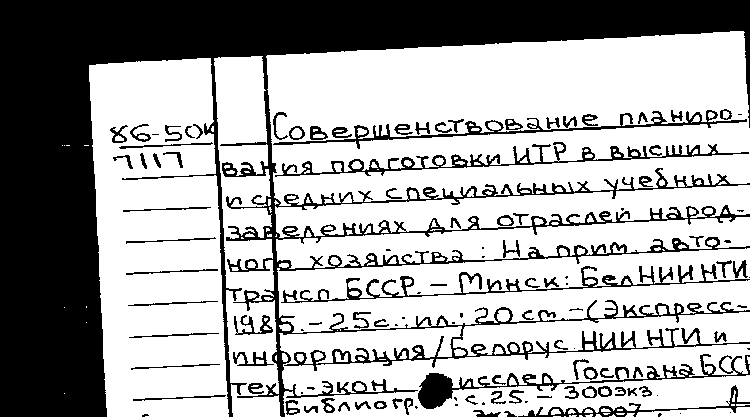 86-50к Совершенствование планиро-
7117 вания подготовки ИТР в высших
и средних специальных учебных
заведениях для отраслей народ-
ного хозяйства: На прим. авто-
трансп. БССР. – Минск: БелНИИНТИ
1985. – 25 с.: ил.; 20 см. – (Экспресс-
информация / Белорус НИИ НТИ и
техн.-экон. исслед. Госплана БССР
Библиогр.: с. 25. – 300 экз.